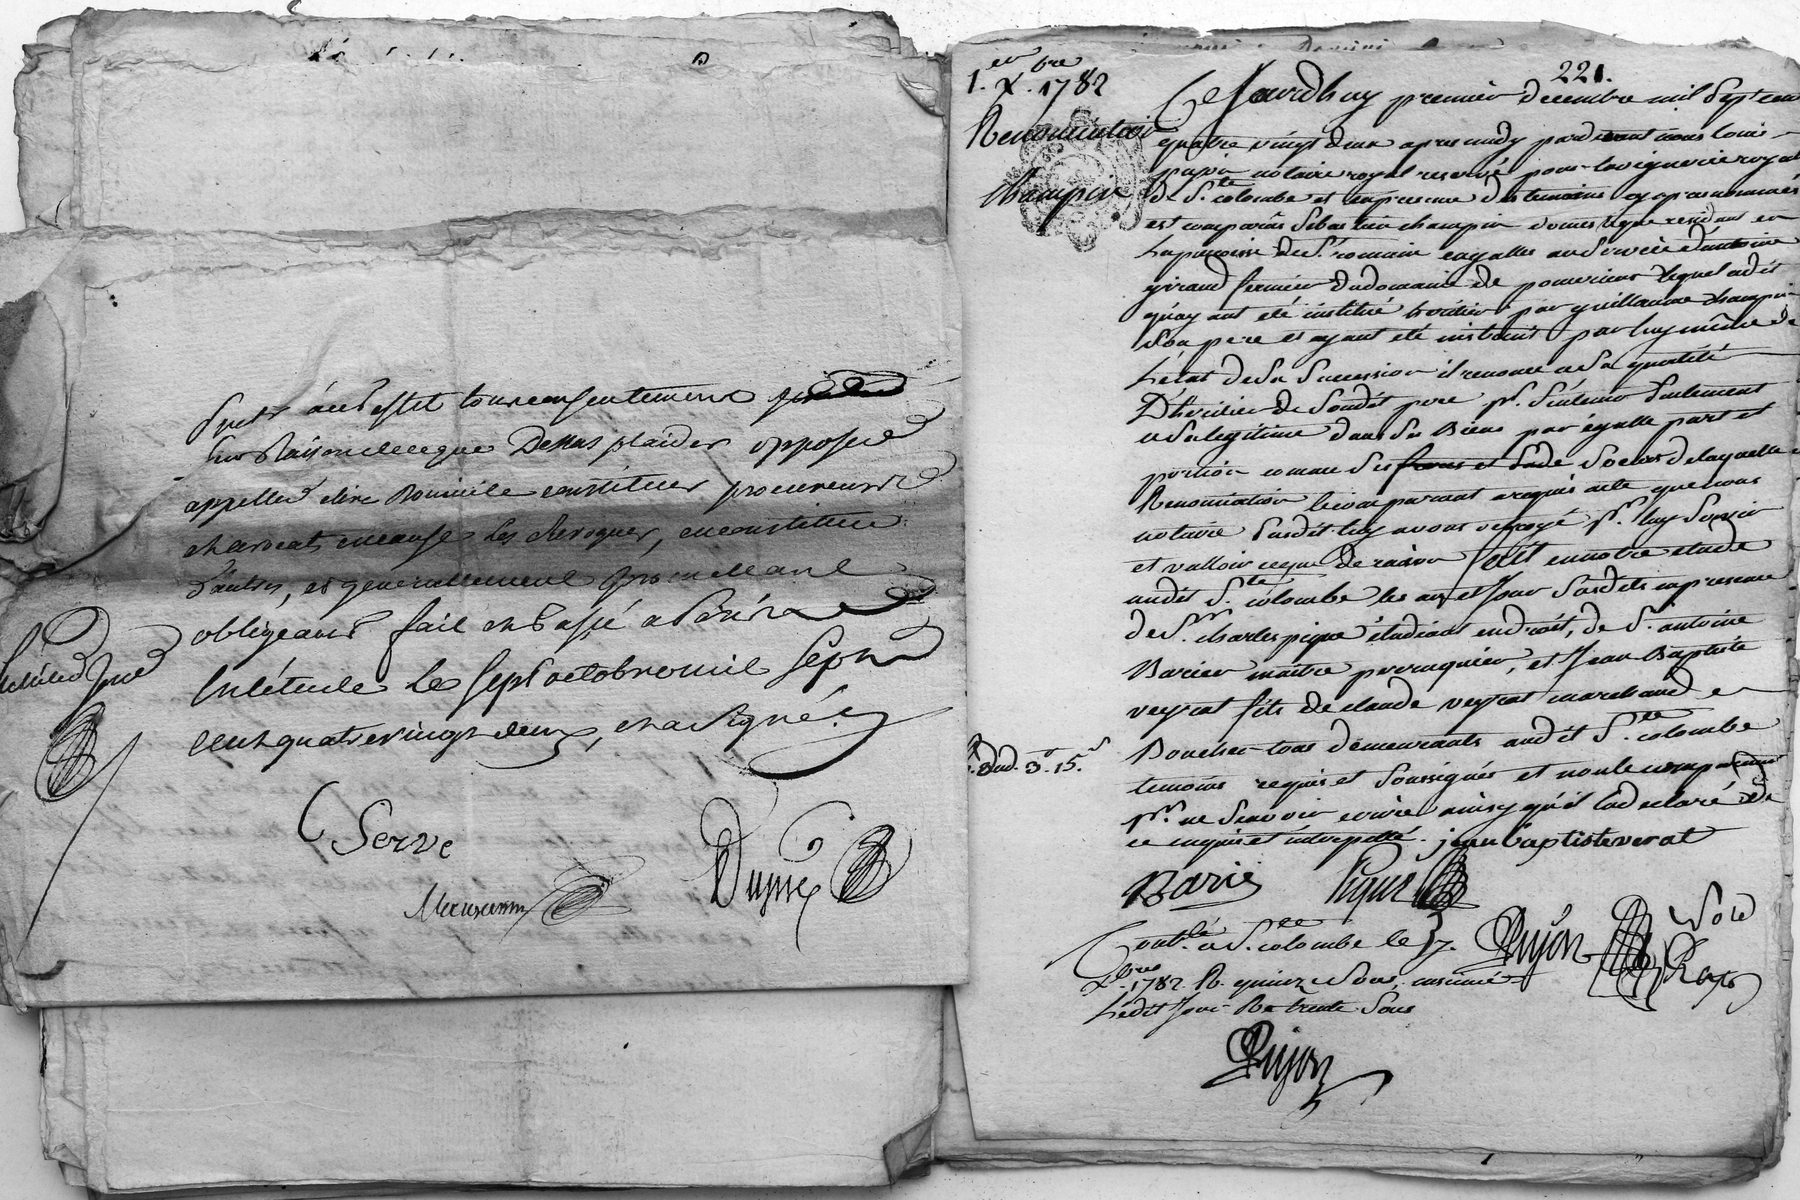 tout consentement
sur Raison ce que Dessus plaider opposer
appeller elire Domicile constituer procureurs
et avocats en cause les Revoquer, en constituer
D'autres, et generallement promettant
obligeant fait et Passé a
En l'étude le sept octobre mil sept
cent quatre vingt deux, et a signé.
Serve
1.er X.bre 1782
Renonciation
Champin
221.
Cejourdhuy premier decembre mil sept cent
quatre vingt deux apres midy pardevant nous louis
pujon notaire royal reservé pour la viguerie royal
De S.te colombe et en presence des temoins cy apres nommés
est comparu Sebastien champin domestique residant en
la paroisse de S.t romain en galles au service d'antoine
giraud fermier du domaine de lequel a dit
qu'ayant eté institué heritier par guillaume champin
son pere et ayant eté instruit par luy même de
L'état de sa succession il renonce a sa qualité
D'héritier de sondit pere p.r s'en tenir seulement
a sa legitime dans ses Biens par égalle part et
portion comme ses freres et de soeurs de laquelle
Renonciation le comparant a requis acte que nous
notaire susdit luy avons octroyé p.r luy servir
et valloir ce que de raison fait en notre etude
audit S.te colombe les an et jour susdits en presence
de S.r charles pique étudiant en droit, de S.r antoine
Barier maitre perruquier, et Jean Baptiste
veyrat fils de claude veyrat marchand
Boucher tous demeurants audit S.te colombe
3. 15.
temoins requis et soussignés et non le comparant
p.r ne sçavoir ecrire ainsy qu'il l'a declaré de
ce enquis et interpellé. jean Baptiste verat
Barie Pique
Pujon
Cont.lé a S.te colombe le 7.
X.bre 1782. R. quinze sous, insinué
Ledit Jour Re trente sous
Pujon